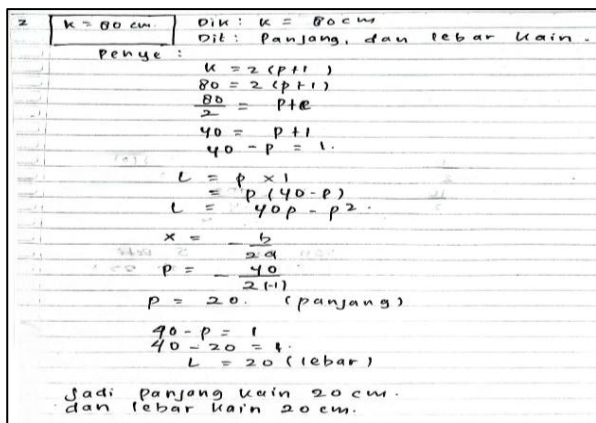 2 K = 80 cm. Dik : K = 80 cm
Dit : Panjang, dan lebar kain.
Penye :
K = 2 (p+l)
80 = 2 (p+l)
80/2 = p+l
40 = p+l
40 - p = l.
L = p x l
= p (40-p)
L = 40p - p².
x = - b/2a
p = - 40/2(-1)
p = 20. (panjang)
40 - p = l
40 - 20 = l.
L = 20 (lebar)
Jadi panjang kain 20 cm.
dan lebar kain 20 cm.